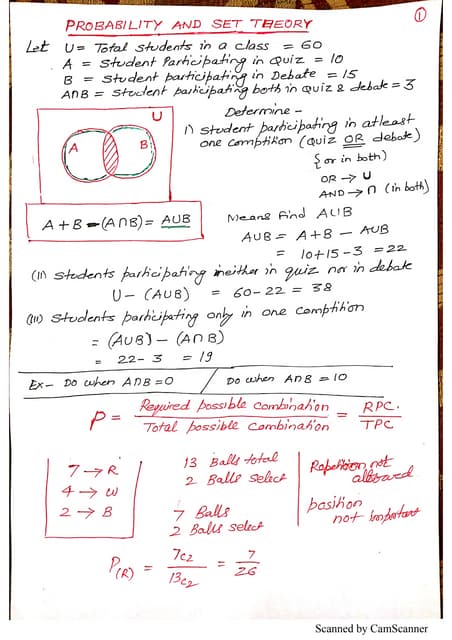 ①
PROBABILITY AND SET THEORY
Let U = Total students in a class = 60
A = Student Participating in Quiz = 10
B = Student participating in Debate = 15
A∩B = Student participating both in Quiz & debate = 3
U
A
B
A + B - (A∩B) = A∪B
Determine -
1) Student participating in atleast
one comptition (Quiz OR debate)
{or in both)
OR → U
AND → ∩ (in both)
Means find A∪B
A∪B = A + B - A∪B
= 10+15-3 = 22
(II) Students participating neither in quiz nor in debate
U - (A∪B) = 60-22 = 38
(III) Students participating only in one comptition
= (A∪B) - (A∩B)
= 22-3 = 19
Ex- Do when A∩B = 0 / Do when A∩B = 10
P = Required possible combination / Total possible combination = RPC. / TPC
7 → R
4 → W
2 → B
13 Balls total
2 Balls select
7 Balls
2 Balls select
Repetition not
allowed
position
not important
P(R) = 7c2 / 13c2 = 7 / 26
Scanned by CamScanner